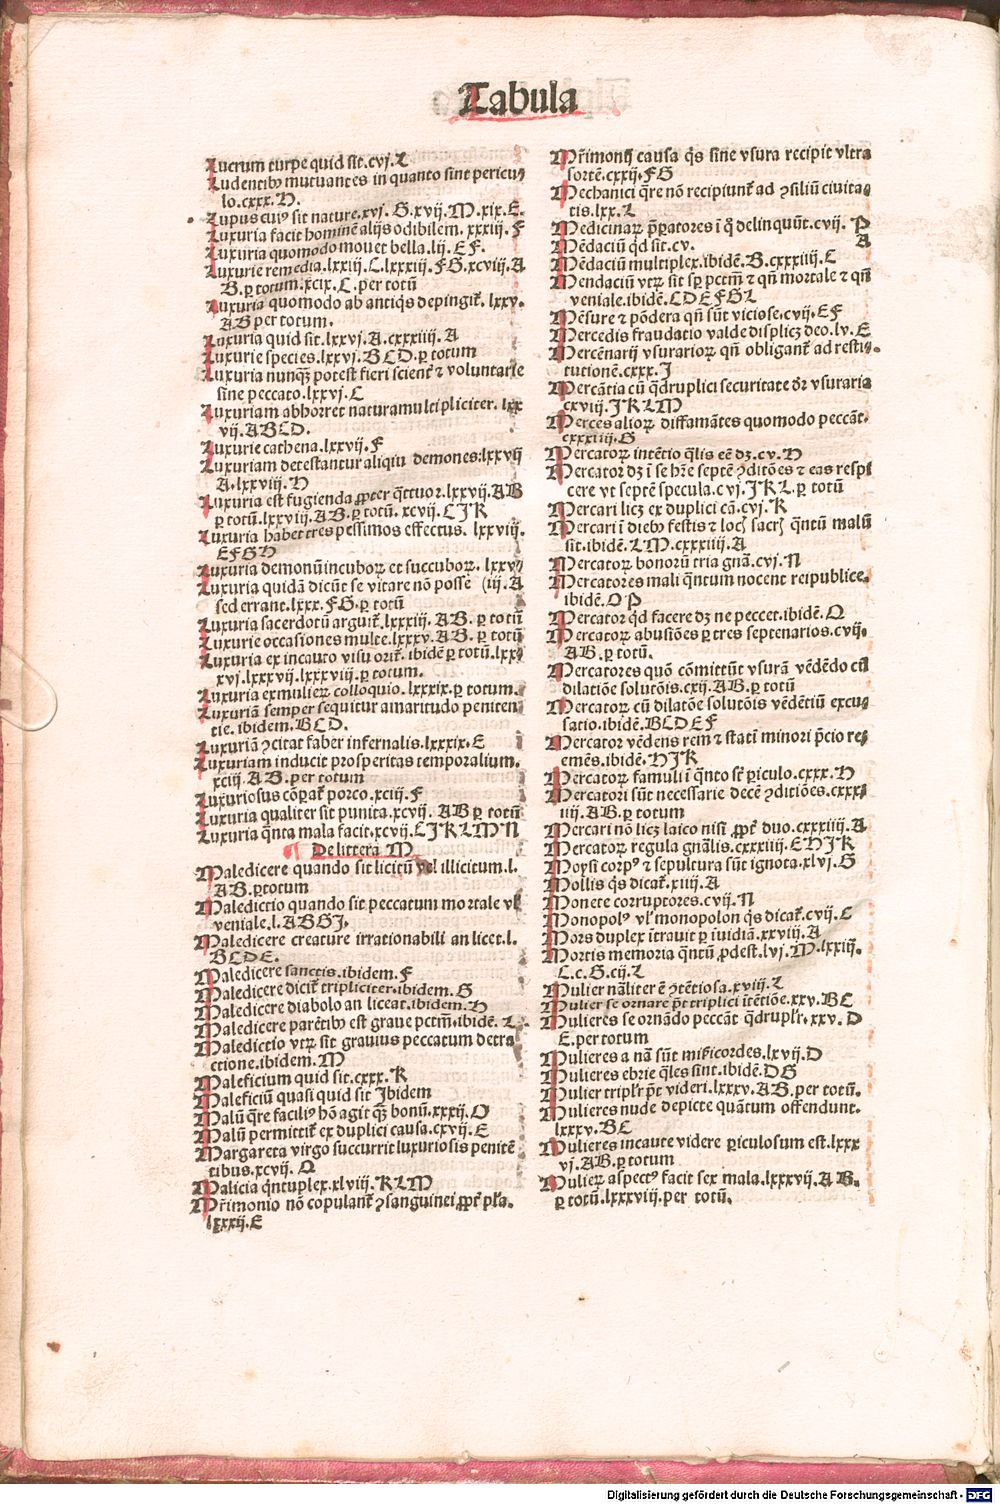 Tabula
Lucrum turpe quid sit.cvj.L
Ludentibꝰ mutuantes in quanto sint pericu
lo.cxxx.H.
Lupus cuiꝰ sit nature.xvj. G.xvij.M.xix.E.
Luxuria facit hominē alijs odibilem. xxxiij. F
Luxuria quomodo mouet bella.lij. E F.
Luxurie remedia.lxxiij.C.lxxxiij.FG.xcviij.A
B. ꝑ totum.xcix.C.per totū
Luxuria quomodo ab antiqs depingit᷑. lxxv.
AB per totum.
Luxuria quid sit.lxxvj.A.cxxxiiij.A
Luxurie species.lxxvj.BCD.ꝑ totum
Luxuria nunqꝫ potest fieri scient᷑ ⁊ voluntarie
sine peccato.lxxvj.C
Luxuriam abhorret natura multipliciter. lxx
vij.ABCD.
Luxurie cathena.lxxvij.F
Luxuriam detestantur aliqiu demones.lxxvij
A.lxxviij.H
Luxuria est fugienda ꝓpter q̄ttuor.lxxvij.AB
ꝑ totū.lxxviij.AB.ꝑ totū. xcvij.CIK
Luxuria habet tres pessimos effectus. lxxviij.
EFGH
Luxuria demonū incuboꝝ et succuboꝝ. lxxv
Luxuria quidā dicūt se vitare nō posse (iij.A
sed errant.lxxx.FG.ꝑ totū
Luxuria sacerdotū arguit᷑.lxxxiij. AB. ꝑ totū
Luxurie occasiones multe.lxxxv.AB. ꝑ totū
Luxuria ex incauto visu orit᷑. ibidē ꝑ totū.lxx
xvj.lxxxvij.lxxxviij.ꝑ totum.
Luxuria ex mulieꝝ colloquio.lxxxix.ꝑ totum.
Luxuriā semper sequitur amaritudo peniten
tie.ibidem.BCD.
Luxuriā ꝯcitat faber infernalis.lxxxix.E
Luxuriam inducit prosperitas temporalium.
xciij.AB.per totum
Luxuriosus cōpat᷑ porco.xciij.F
Luxuria qualiter sit punita.xcvij. AB ꝑ totū
Luxuria q̄nta mala facit.xcvij.CIKLMN
De littera M
Maledicere quando sit licitū vel illicitum.l.
AB.ꝑ totum
Maledictio quando sit peccatum mortale vl
veniale.l.ABGI.
Maledicere creature irrationabili an licet.l.
BCDE.
Maledicere sanctis.ibidem.F
Maledicere dicit᷑ tripliciter.ibidem.G
Maledicere diabolo an liceat.ibidem.H
Maledicere parētibꝰ est graue pctm̄.ibidē. L
Maledictio vtꝝ sit grauius peccatum detra
ctione.ibidem.M
Maleficium quid sit.cxxx.K
Maleficiū quasi quid sit Ibidem
Malū q̄re faciliꝰ hō agit qꝫ bonū.xxxij.O
Malū permittit᷑ ex duplici causa.cxvij.E
Margareta virgo succurrit luxuriosis penitē
tibus.xcvij. Q
Malicia q̄ntuplex.xlviij.KLM
Mr̄imonio nō copulant᷑ ꝯsanguinei ꝓpt᷑ pl'a.
lxxxij.E
Mr̄imonij causa q̄s sine vsura recipit vltra
sortē.cxxij.FG
Mechanici q̄re nō recipiunt᷑ ad ꝯsiliū ciuita
tis.lxx.L
Medicinaꝝ p̄ꝑatores ī q̊ delinquūt.cvij. P
Mēdaciū qd sit.cv. A
Mēdaciū multiplex.ibidē.B.cxxxiiij.C
Mendaciū vtꝝ sit sꝑ pctm̄ ⁊ qn̄ mortale ⁊ qn̄
veniale.ibidē.CDEFGL
Mēsure ⁊ pōdera qn̄ sūt viciose.cvij.EF
Mercedis fraudatio valde displicꝫ deo.lv.E
Mercēnarij vsurarioꝝ qn̄ obligant᷑ ad resti
tutionē.cxxx.I
Mercātia cū q̄druplici securitate dr̄ vsuraria
cxviij.IKLM
Merces alioꝝ diffamātes quomodo peccāt.
cxxxiiij.G
Mercatoꝝ intētio q̄lis eē dꝫ.cv.H
Mercator dꝫ ī se hr̄e septē ꝯditōes ⁊ eas respi
cere vt septē specula.cvj.IKL.ꝑ totū
Mercari licꝫ ex duplici cā.cvj.K
Mercari ī diebꝰ festis ⁊ locꝭ sacrꝭ q̄ntū malū
sit.ibidē.LM.cxxxiiij.A
Mercatoꝝ bonorū tria gn̄a.cvj.N
Mercatores mali q̄ntum nocent reipublice.
ibidē.OP
Mercator qd facere dꝫ ne peccet.ibidē.Q
Mercatoꝝ abusiōes ꝑ tres septenarios.cvij.
AB.ꝑ totū.
Mercatores quō cōmittūt vsurā vēdēdo cū
dilatiōe solutōis.cxij.AB.ꝑ totū
Mercatoꝝ cū dilatōe solutōis vēdētiū excu
satio.ibidē.BCDEF
Mercator vēdens rem ⁊ statī minori p̄cio re
emēs.ibidē.HIK
Mercatoꝝ famuli ī q̄nto st᷑ ꝑiculo.cxxx.H
Mercatori sūt necessarie decē ꝯditiōes.cxxx
iij.AB.ꝑ totum
Mercari nō licꝫ laico nisi ꝓpt᷑ duo.cxxxiiij.A
Mercatoꝝ regula gnālis.cxxxiiij.EHIK
Moysi corpꝰ ⁊ sepultura sūt ignota.xlvj.G
Mollis q̄s dicat᷑.xiiij.A
Monete corruptores.cvij.N
Monopolꝰ vl' monopolon q̄s dicat᷑.cvij.C
Mors duplex ītrauit ꝑ īuidiā.xxviij.A
Mortis memoria q̄ntū ꝓdest.lvj.M.lxxiij.
C.c.G.cij.L
Mulier nāliter ē ꝯtētiosa.xviij.L
Mulier se ornare pt̄ triplici ītētiōe.xxv.BC
Mulieres se ornādo peccāt q̄drupl'r.xxv. D
E.per totum
Mulieres a nā sūt mīsicordes.lxvij.D
Mulieres ebrie q̄les sint.ibidē.DG
Mulier tripl'r pt̄ videri.lxxxv.AB.per totū.
Mulieres nude depicte quātum offendunt.
lxxxv.BC
Mulieres incaute videre ꝑiculosum est.lxxx
vj.AB.ꝑ totum
Mulieꝝ aspectꝰ facit sex mala.lxxxvij.AB.
ꝑ totū.lxxxviij.per totū.
Digitalisierung gefördert durch die Deutsche Forschungsgemeinschaft - DFG